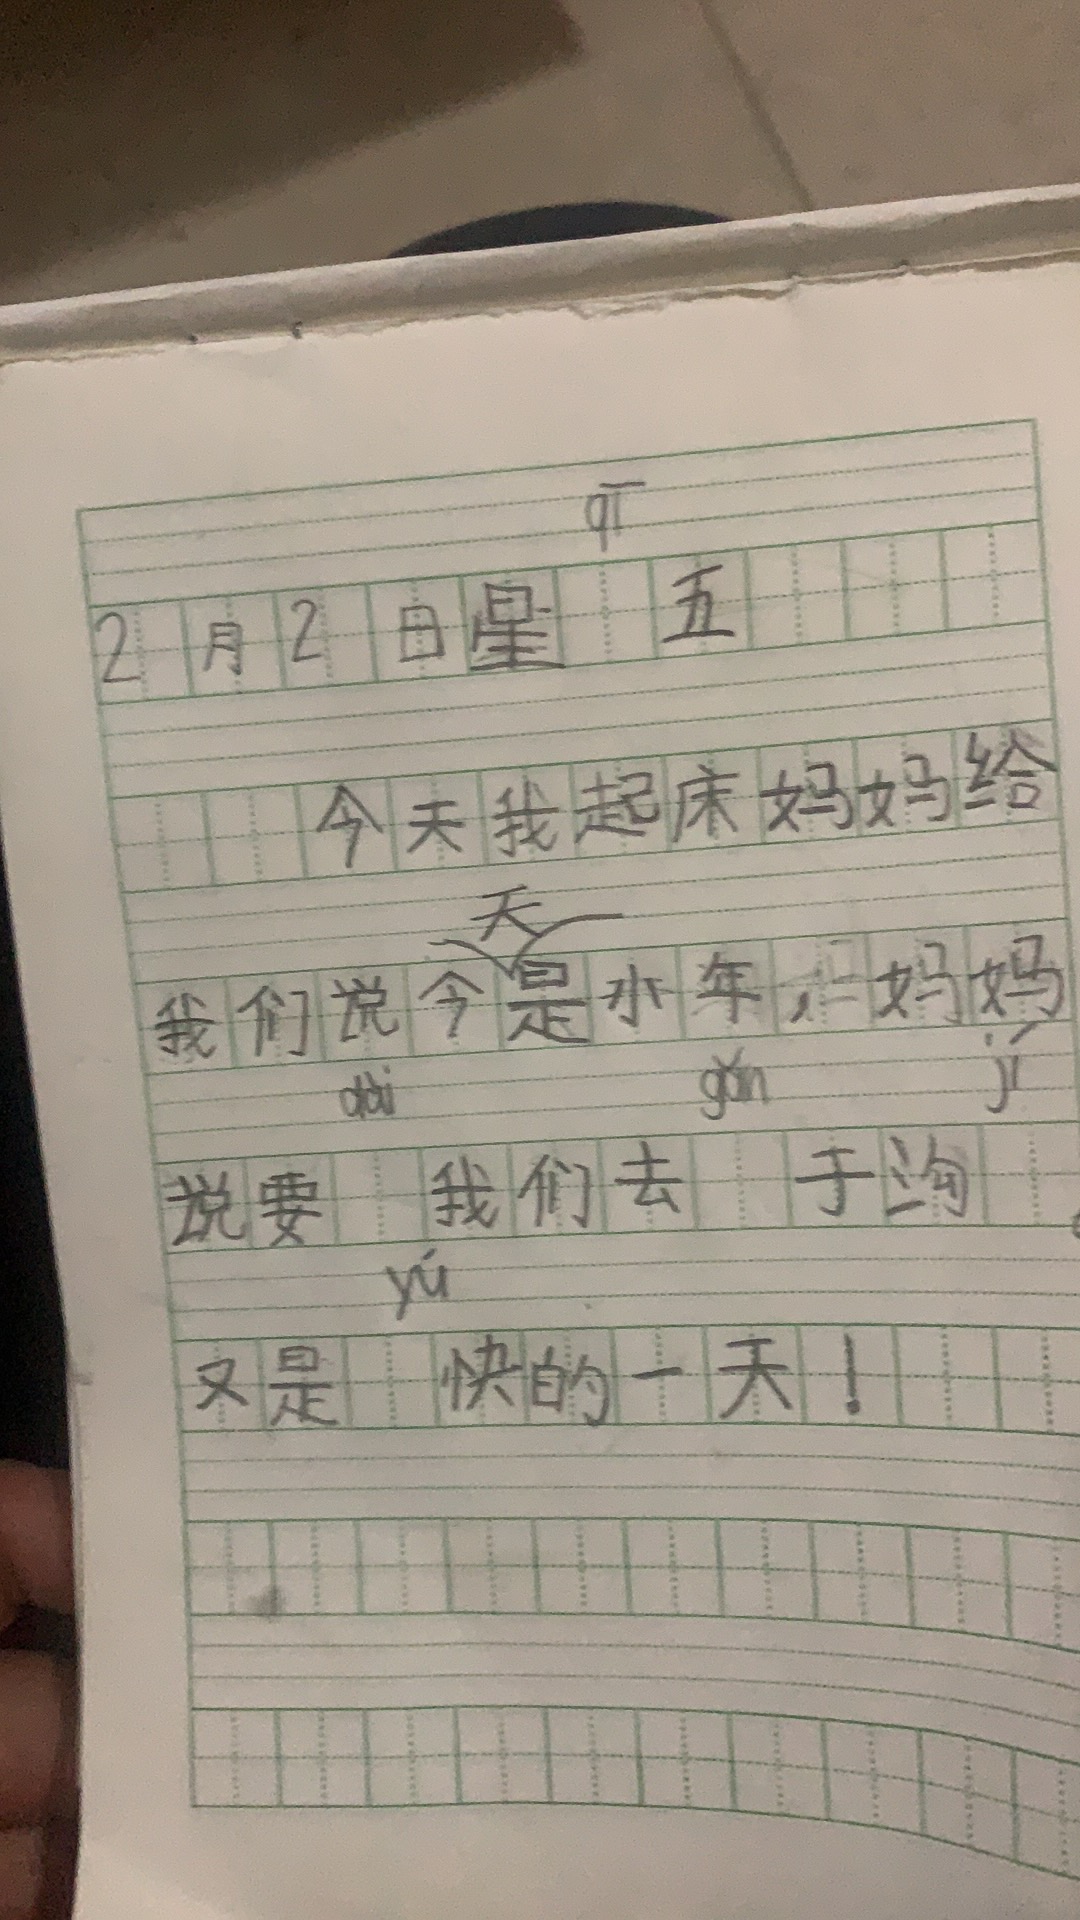 qī
2月2日星 五
今天我起床妈妈给
天
我们说今是小年,妈妈
dài gǎn jí
说要 我们去 于沟
yú
又是 快的一天!